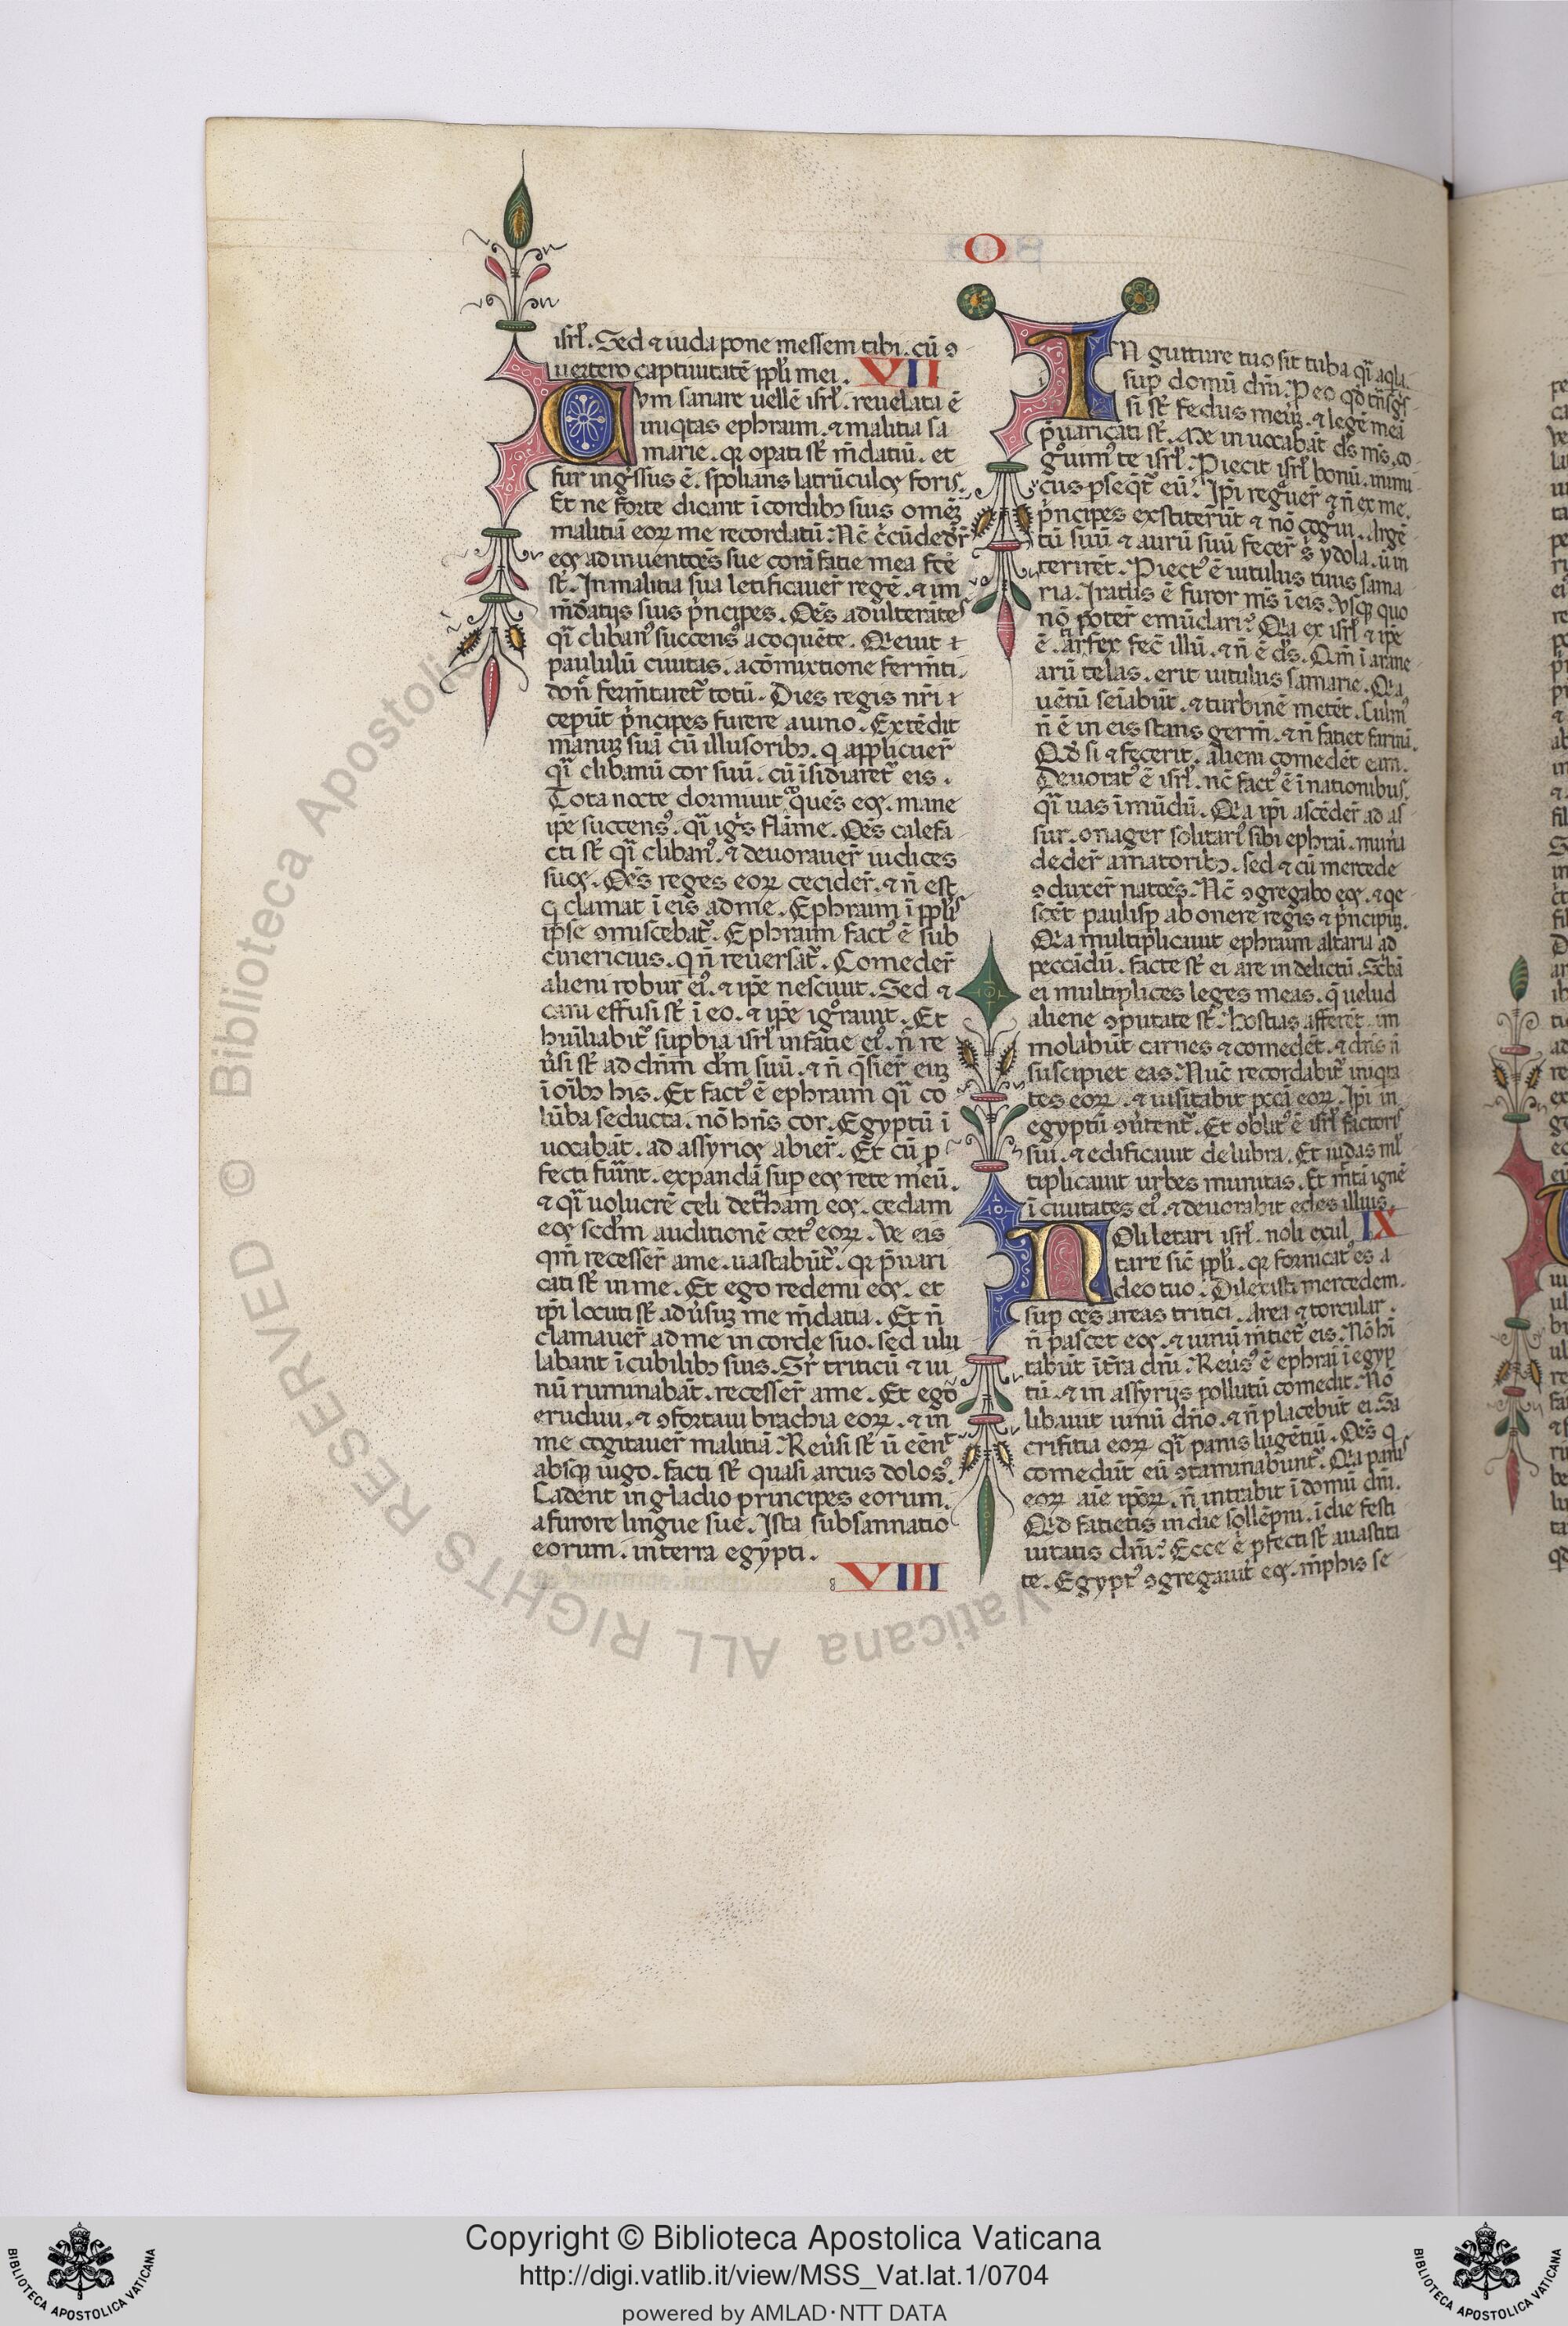 O
isrł. Sed ⁊ iuda pone messem tibi. cū ꝯ
uertero captiuitatē ppłi mei. VII
Cvm sanare uellē isrł. reuelata ē
iniqtas ephraim. ⁊ malitia sa
marie. qꝛ opati st̄ m̄datiū. et
fur ingssus ē. spolians latrūculoꝫ foris.
Et ne forte dicant ī cordibꝫ suis omēꝫ
malitiā eoꝝ me recordatū. Nc̄ c̄cūdedr̄t
eoꝫ adinuentōes sue corā fatie mea fcē
st̄. In malitia sua letificauer̄ regē. ⁊ im
m̄datijs suis pncipes. Oēs adulterātes
qī clibanꝰ succensꝰ acoquēte. Qeuit ī
paululū ciuitas. acōmixtione ferm̄ti.
don̄ ferm̄taret totū. Dies regis nr̄i ī
cepūt pncipes furere auino. Extēdit
manuꝫ suā cū illusoribꝫ. q applicuer̄
qī clibanū cor suū. cū īsidiaret eis.
Tota nocte dormiuit coquēs eoꝫ. mane
ip̄e succensꝰ. qī igs flāme. Oēs calefa
cti st̄ qī clibanꝰ. ⁊ deuorauer̄ iudices
suoꝫ. Oēs reges eoꝝ cecider̄. ⁊ n̄ est
q clamat ī eis ad me. Ephraim ī ppłis
ipse ꝯmiscebat. Ephraim factꝰ ē sub
cinericius. q n̄ reuersat. Comeder̄
alieni robur eiꝰ. ⁊ ip̄e nesciuit. Sed ⁊
cani effusi st̄ ī eo. ⁊ ip̄e igrauit. Et
huīliabit supbia isrł in fatie eiꝰ. n̄ re
ūsi st̄ ad dn̄m dm̄ suū. ⁊ n̄ qsier̄ euꝫ
ī oībꝫ his. Et factꝰ ē ephraim qī co
lūba seducta. nō hn̄s cor. Egyptū ī
uocabāt. ad assyrioꝫ abier̄. Et cū p
fecti fuīnt. expandā sup eoꝫ rete meū.
⁊ qī uolucrē celi det̄ham eoꝫ. cedam
eoꝫ scdm̄ auditionē cetꝰ eoꝝ. Ve eis
qm̄ recesser̄ a me. uastabūt. qꝛ p̄uari
cati st̄ in me. Et ego redemi eoꝫ. et
ip̄i locuti st̄ adūsuꝫ me m̄datia. Et n̄
clamauer̄ ad me in corde suo. sed ulu
labant ī cubilibꝫ suis. Sr̄ triticū ⁊ ui
nū ruminabāt. recesser̄ a me. Et ego
erudiui. ⁊ ꝯfortaui brachia eoꝝ. ⁊ in
me cogitauer̄ malitiā. Reūsi st̄ ū eēnt
absqꝫ iugo. facti st̄ quasi arcus dolosꝰ.
Cadent in gladio principes eorum.
a furore lingue sue. Ista subsannatio
eorum. in terra egypti.
8 VIII
IN gutture tuo sit tuba qī aqła
sup domū dn̄i. Peo qđ tn̄sgs
si st̄ fedus meuꝫ. ⁊ legē meā
p̄uaricati st̄. Me inuocabāt ds̄ ms̄. co
guimꝰ te isrł. Piecit isrł bonū. inimi
cus pseqt eū. Ip̄i reguer̄ ⁊ n̄ ex me.
pncipes exstiterūt ⁊ nō cogui. Argē
tū suū ⁊ aurū suū fecer̄ s̄ ydola. ū in
terirēt. Piectꝰ ē uitulus tuus sama
ria. Iratus ē furor ms̄ ī eis. Vsqꝫ quo
nō poter̄ emūdari? Qia ex isrł ⁊ ip̄e
ē. artifex fec̄ illū. ⁊ n̄ ē ds̄. Qm̄ ī arane
arū telas. erit uitulus samarie. Qia
uētū seīabūt. ⁊ turbinē metēt. Culmꝰ
n̄ ē in eis stans germ̄. ⁊ n̄ fatiet farinā.
Qđ si ⁊ fecerit. alieni comedēt eam.
Deuoratꝰ ē isrł. nc̄ factꝰ ē ī nationibus.
qī uas īmūdū. Qia ip̄i ascēder̄ ad as
sur. onager solitariꝰ sibi ephrai. mun̄a
deder̄ amatoribꝫ. sed ⁊ cū mercede
ꝯduxer̄ natōes. Nc̄ ꝯgregabo eoꝫ. ⁊ qe
scēt paulisp ab onere regis ⁊ pncipuꝫ.
Qia multiplicauit ephraim altaria ad
peccādū. facte st̄ ei are in delictū. Scbā
ei multiplices leges meas. q uelud
aliene ꝯputate st̄. Hostias afferēt. im
molabūt carnes ⁊ comedēt. ⁊ dn̄s n̄
suscipiet eas. Nūc recordabit iniqta
tes eoꝝ. ⁊ uisitabit pccā eoꝝ. Ip̄i in
egyptū ꝯūtent. Et oblitꝰ ē isrł factoris
sui. ⁊ edificauit delubra. Et iudas mł
tiplicauit urbes munitas. Et m̄tā ignē
ī ciuitates eiꝰ. ⁊ deuorabit edes illius.
Noli letari isrł. noli exul IX
tare sic̄ ppłi. qꝛ fornicatꝰ es a
deo tuo. Dilexisti mercedem.
sup oēs areas tritici. Area ⁊ torcular.
n̄ pascet eoꝫ. ⁊ uinū m̄tiet eis. Nō hī
tabūt ī t̄ra dn̄i. Reūsꝰ ē ephrai ī egyp
tū. ⁊ in assyrijs pollutū comedit. Nō
libauit uinū dn̄o. ⁊ n̄ placebūt ei. Sa
crifitia eoꝝ qī panis lugētiū. Oēs q
comedūt eū ꝯtaminabunt. Qia panis
eoꝝ aīe ip̄oꝝ. n̄ intrabit ī domū dn̄i.
Qid fatietis in die sollēpni. ī die festi
uitatis dn̄i? Ecce ē pfecti st̄ auastita
te. Egyptꝰ ꝯgregauit eoꝫ. m̄phis se
Copyright © Biblioteca Apostolica Vaticana
http://digi.vatlib.it/view/MSS_Vat.lat.1/0704
powered by AMLAD·NTT DATA
BIBLIOTECA APOSTOLICA VATICANA
BIBLIOTECA APOSTOLICA VATICANA
© Biblioteca Apostolica Vaticana ALL RIGHTS RESERVED